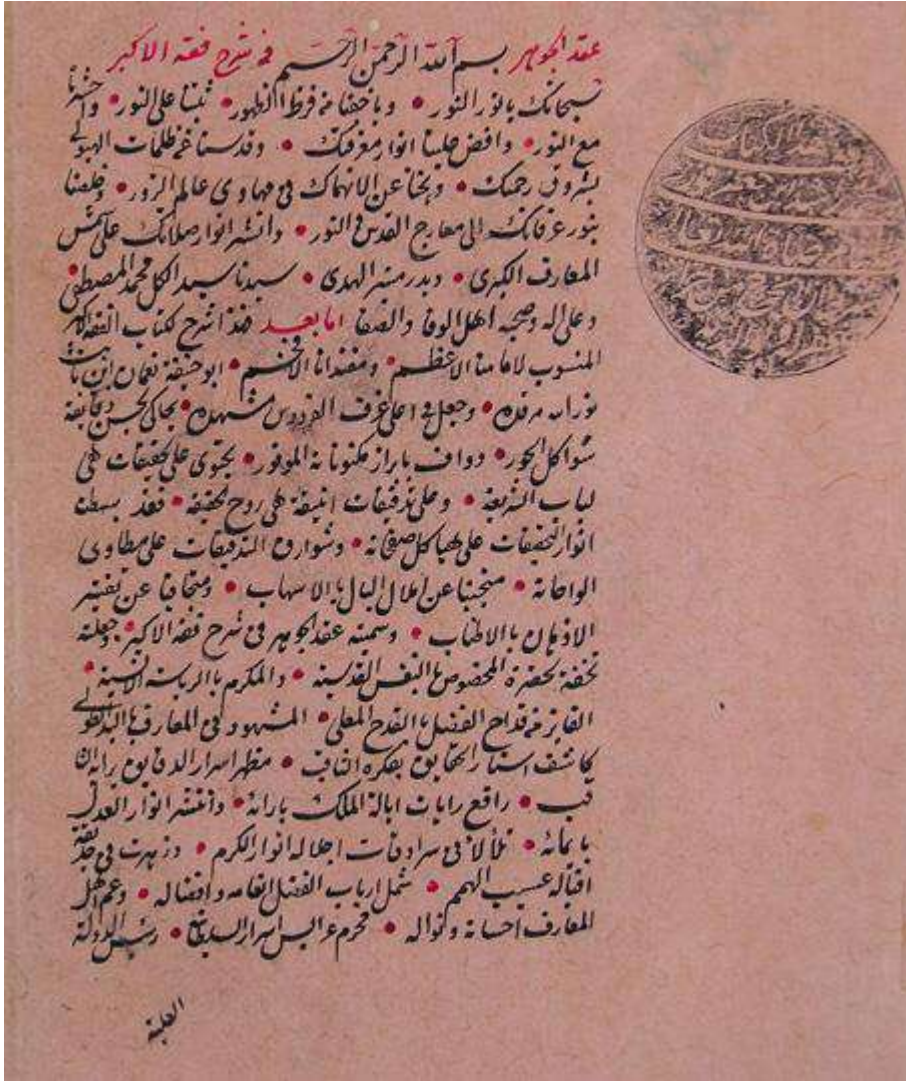 عقد الجوهر بسم الله الرحمن الرحيم في شرح فقه الاكبر
سبحانك يا نور النور • ويا خفيا من فرط الظهور • ثبتنا على النور • واحشرنا
مع النور • وافض علينا انوار معرفتك • وقدسنا عن ظلمات الهيولى
بشروق رحمتك • ونجنا عن الانهماك في مهاوى عالم الزور •
بنور عرفانك الى معارج القدس والنور • وانشر انوار صلاتك على شمس
المعارف الكبرى • وبدر سماء الهدى • سيدنا سيد الكل محمد المصطفى
وعلى اله وصحبه اهل الوفا والصفا اما بعد هذا شرح لكتاب الفقه الاكبر
المنسوب لامامنا الاعظم • ومقتدانا الافخم • ابو حنيفة نعمان ابن ثابت
نور الله مرقده • وجعل في اعلى غرف الفردوس مشهده • يحاكى بحسن
الحور • وواف بابراز مكنوناته الموفور • يحتوى على تحقيقات هى
لباب الشريعة • وعلى تدقيقات انيقة هى روح الحقيقة • فقد بسطت
انوار التحقيقات على هياكل صفحاته • وشوارق التدقيقات على مطاوى
الواحاته • متجنبا عن املال البال بالاسهاب • ومتجافيا عن
الاذهان بالاطناب • وسميته عقد الجوهر في شرح فقه الاكبر • وجعلته
تحفة لحضرة المخصوص بالنفس القدسية • والمكرم بالرياسة الانسية •
الفايز من قداح الفضل بالقدح المعلى • المشهود في المعارف
كاشف استار الحقايق بفكره الثاقب • مظهر اسرار الدقايق برايه
• رافع رايات ايالة الملك بارائه • وانتشر انوار العدل
• تلألأ في سرادقات اجلاله انوار الكرم • وزهرت في حديقة
اقباله • شمل ارباب الفضل انعامه وافضاله • وعم اهل
المعارف احسانه ونواله • محرم عرايس اسرار السلطانى • رئيس الدولة
العلية